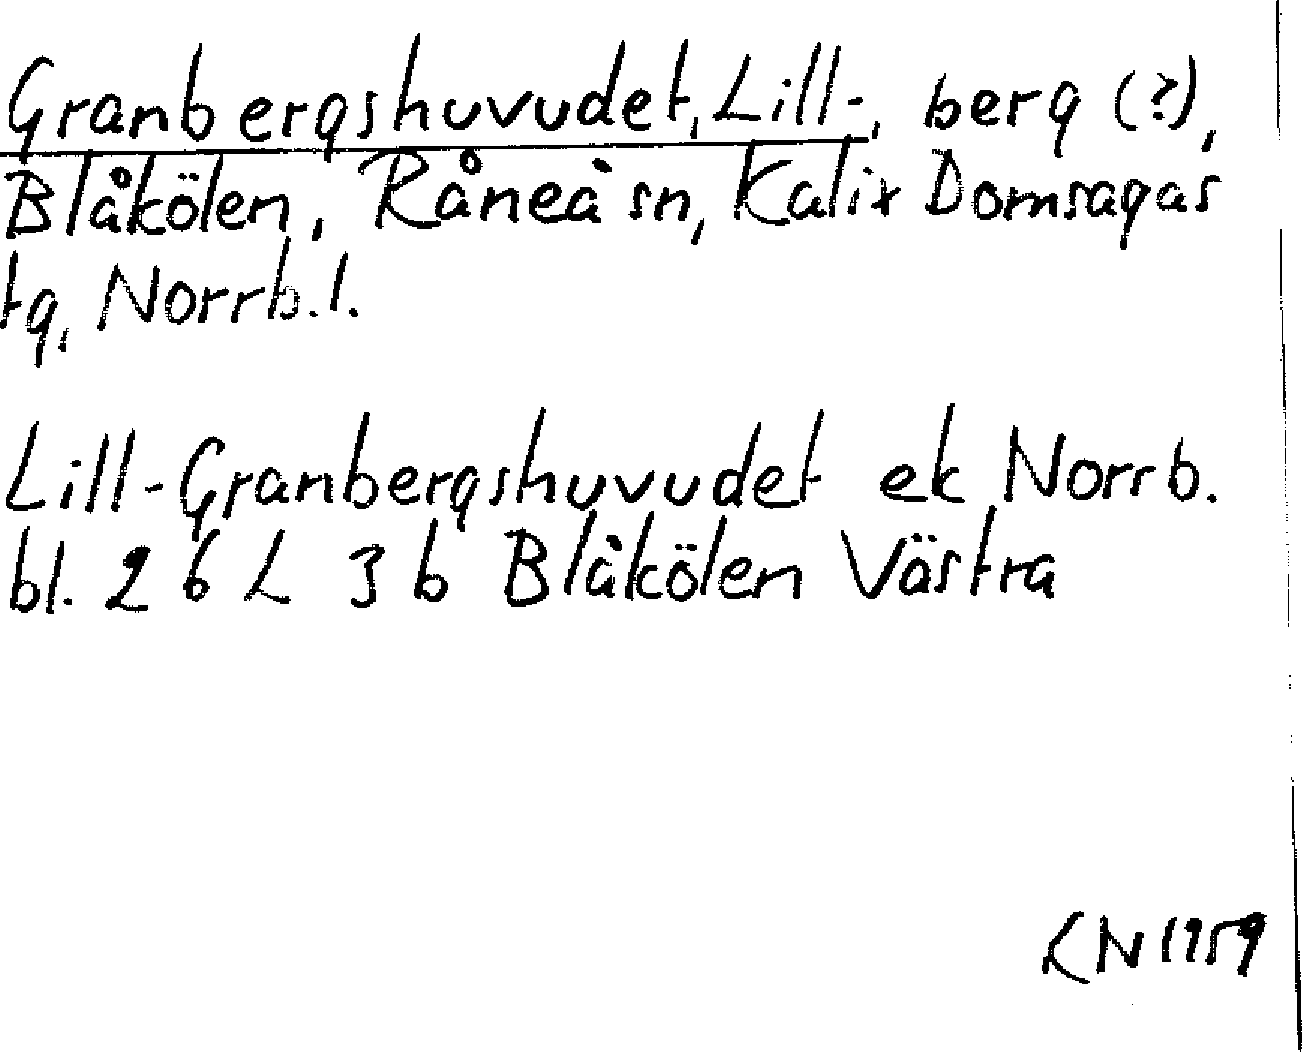 Granbergshuvudet, Lill-, berg (?),
Blåkölen, Råneå sn, Kalix Domsagas
tg, Norrb. l.
Lill-Granbergshuvudet ek Norrb.
bl. 26 L 3 b Blåkölen Västra
KN 1959